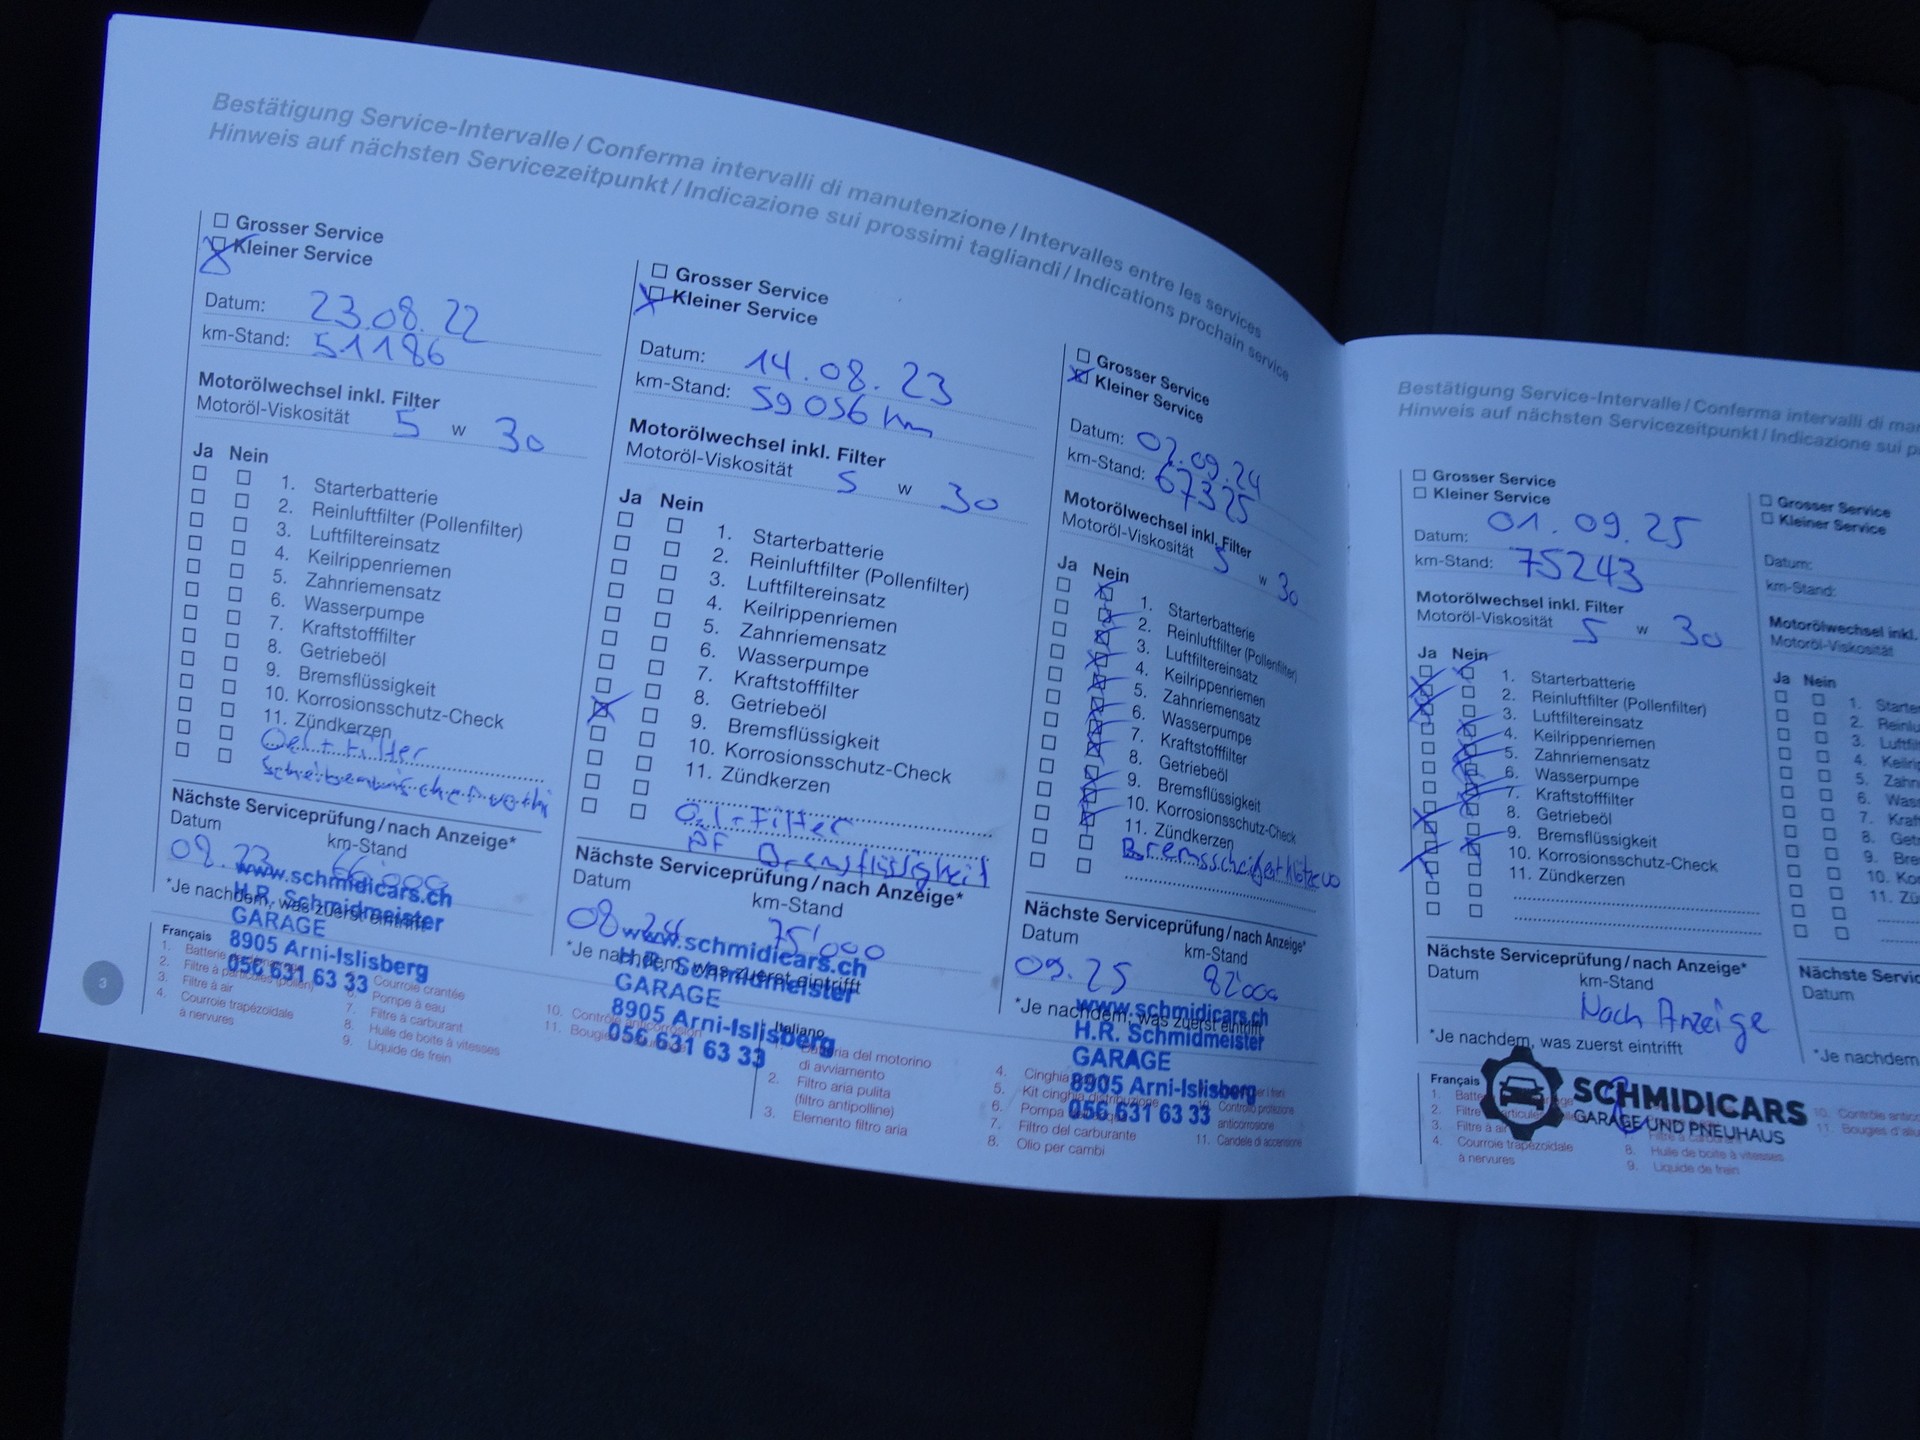 Bestätigung Service-Intervalle / Conferma intervalli di manutenzione / Intervalles entre les services
Hinweis auf nächsten Servicezeitpunkt / Indicazione sui prossimi tagliandi / Indications prochain service
Grosser Service
Kleiner Service
Datum: 23.08.22
km-Stand: 51186
Motorölwechsel inkl. Filter
Motoröl-Viskosität 5 w 30
Ja Nein
1. Starterbatterie
2. Reinluftfilter (Pollenfilter)
3. Luftfiltereinsatz
4. Keilrippenriemen
5. Zahnriemensatz
6. Wasserpumpe
7. Kraftstofffilter
8. Getriebeöl
9. Bremsflüssigkeit
10. Korrosionsschutz-Check
11. Zündkerzen
Oel + Filter
Nächste Serviceprüfung / nach Anzeige*
Datum km-Stand
08.23 66'000
*Je nachdem, was zuerst eintrifft
www.schmidicars.ch
H.R. Schmidmeister
GARAGE
8905 Arni-Islisberg
056 631 63 33
Français
1. Batterie
2. Filtre à particules (pollen)
3. Filtre à air
4. Courroie trapézoïdale
à nervures
Courroie crantée
6. Pompe à eau
7. Filtre à carburant
8. Huile de boîte à vitesses
9. Liquide de frein
3
Grosser Service
Kleiner Service
Datum: 14.08.23
km-Stand: 59056 km
Motorölwechsel inkl. Filter
Motoröl-Viskosität 5 w 30
Ja Nein
1. Starterbatterie
2. Reinluftfilter (Pollenfilter)
3. Luftfiltereinsatz
4. Keilrippenriemen
5. Zahnriemensatz
6. Wasserpumpe
7. Kraftstofffilter
8. Getriebeöl
9. Bremsflüssigkeit
10. Korrosionsschutz-Check
11. Zündkerzen
Oel + Filter
Bremsflüssigkeit
Nächste Serviceprüfung / nach Anzeige*
Datum km-Stand
08.24 75'000
*Je nachdem, was zuerst eintrifft
www.schmidicars.ch
H.R. Schmidmeister
GARAGE
8905 Arni-Islisberg
056 631 63 33
10. Contrôle anticorrosion
11. Bougies
Italiano
di avviamento
2. Filtro aria pulita
(filtro antipolline)
3. Elemento filtro aria
Grosser Service
Kleiner Service
Datum: 02.09.24
km-Stand: 67325
Motorölwechsel inkl. Filter
Motoröl-Viskosität 5 w 30
Ja Nein
1. Starterbatterie
2. Reinluftfilter (Pollenfilter)
3. Luftfiltereinsatz
4. Keilrippenriemen
5. Zahnriemensatz
6. Wasserpumpe
7. Kraftstofffilter
8. Getriebeöl
9. Bremsflüssigkeit
10. Korrosionsschutz-Check
11. Zündkerzen
Nächste Serviceprüfung / nach Anzeige*
Datum km-Stand
09.25 82'000
*Je nachdem, was zuerst eintrifft
www.schmidicars.ch
H.R. Schmidmeister
GARAGE
8905 Arni-Islisberg
056 631 63 33
4. Cinghia
5. Kit cinghia distribuzione
6. Pompa
7. Filtro del carburante
8. Olio per cambi
Controllo protezione
anticorrosione
11. Candele di accensione
Bestätigung Service-Intervalle / Conferma intervalli di
Hinweis auf nächsten Servicezeitpunkt / Indicazione sui
Grosser Service
Kleiner Service
Datum: 01.09.25
km-Stand: 75243
Motorölwechsel inkl. Filter
Motoröl-Viskosität 5 w 30
Ja Nein
1. Starterbatterie
2. Reinluftfilter (Pollenfilter)
3. Luftfiltereinsatz
4. Keilrippenriemen
5. Zahnriemensatz
6. Wasserpumpe
7. Kraftstofffilter
8. Getriebeöl
9. Bremsflüssigkeit
10. Korrosionsschutz-Check
11. Zündkerzen
Nächste Serviceprüfung / nach Anzeige*
Datum km-Stand
Nach Anzeige
*Je nachdem, was zuerst eintrifft
SCHMIDICARS
GARAGE UND PNEUHAUS
Français
1.
2. Filtre
3. Filtre à air
4. Courroie trapézoïdale
à nervures
7. Filtre à carburant
8. Huile de boîte à vitesses
9. Liquide de frein
10. Contrôle
11. Bougies
Grosser Service
Kleiner Service
Datum:
km-Stand:
Motorölwechsel inkl.
Motoröl-Viskosität
Ja Nein
1.
2.
3.
4.
5.
6.
7.
8.
9.
10.
11.
Datum
*Je nachdem